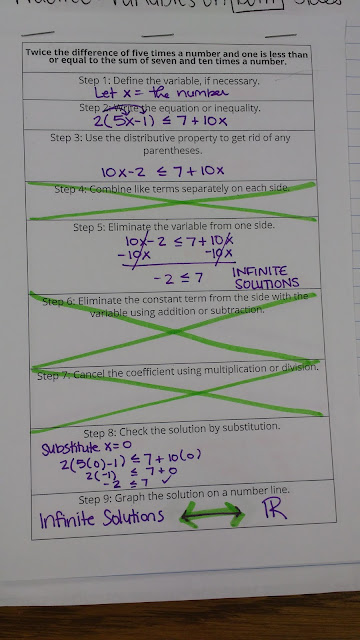 Practice Variables on Both Sides
Twice the difference of five times a number and one is less than
or equal to the sum of seven and ten times a number.
Step 1: Define the variable, if necessary.
Let x = the number
Step 2: Write the equation or inequality.
2(5x-1) ≤ 7+10x
Step 3: Use the distributive property to get rid of any
parentheses.
10x-2 ≤ 7+10x
Step 4: Combine like terms separately on each side.
Step 5: Eliminate the variable from one side.
10x-2 ≤ 7+10x
-10x -10x
-2 ≤ 7 INFINITE
SOLUTIONS
Step 6: Eliminate the constant term from the side with the
variable using addition or subtraction.
Step 7: Cancel the coefficient using multiplication or division.
Step 8: Check the solution by substitution.
Substitute x=0
2(5(0)-1) ≤ 7+10(0)
2(-1) ≤ 7+0
-2 ≤ 7 ✓
Step 9: Graph the solution on a number line.
Infinite Solutions ℝ